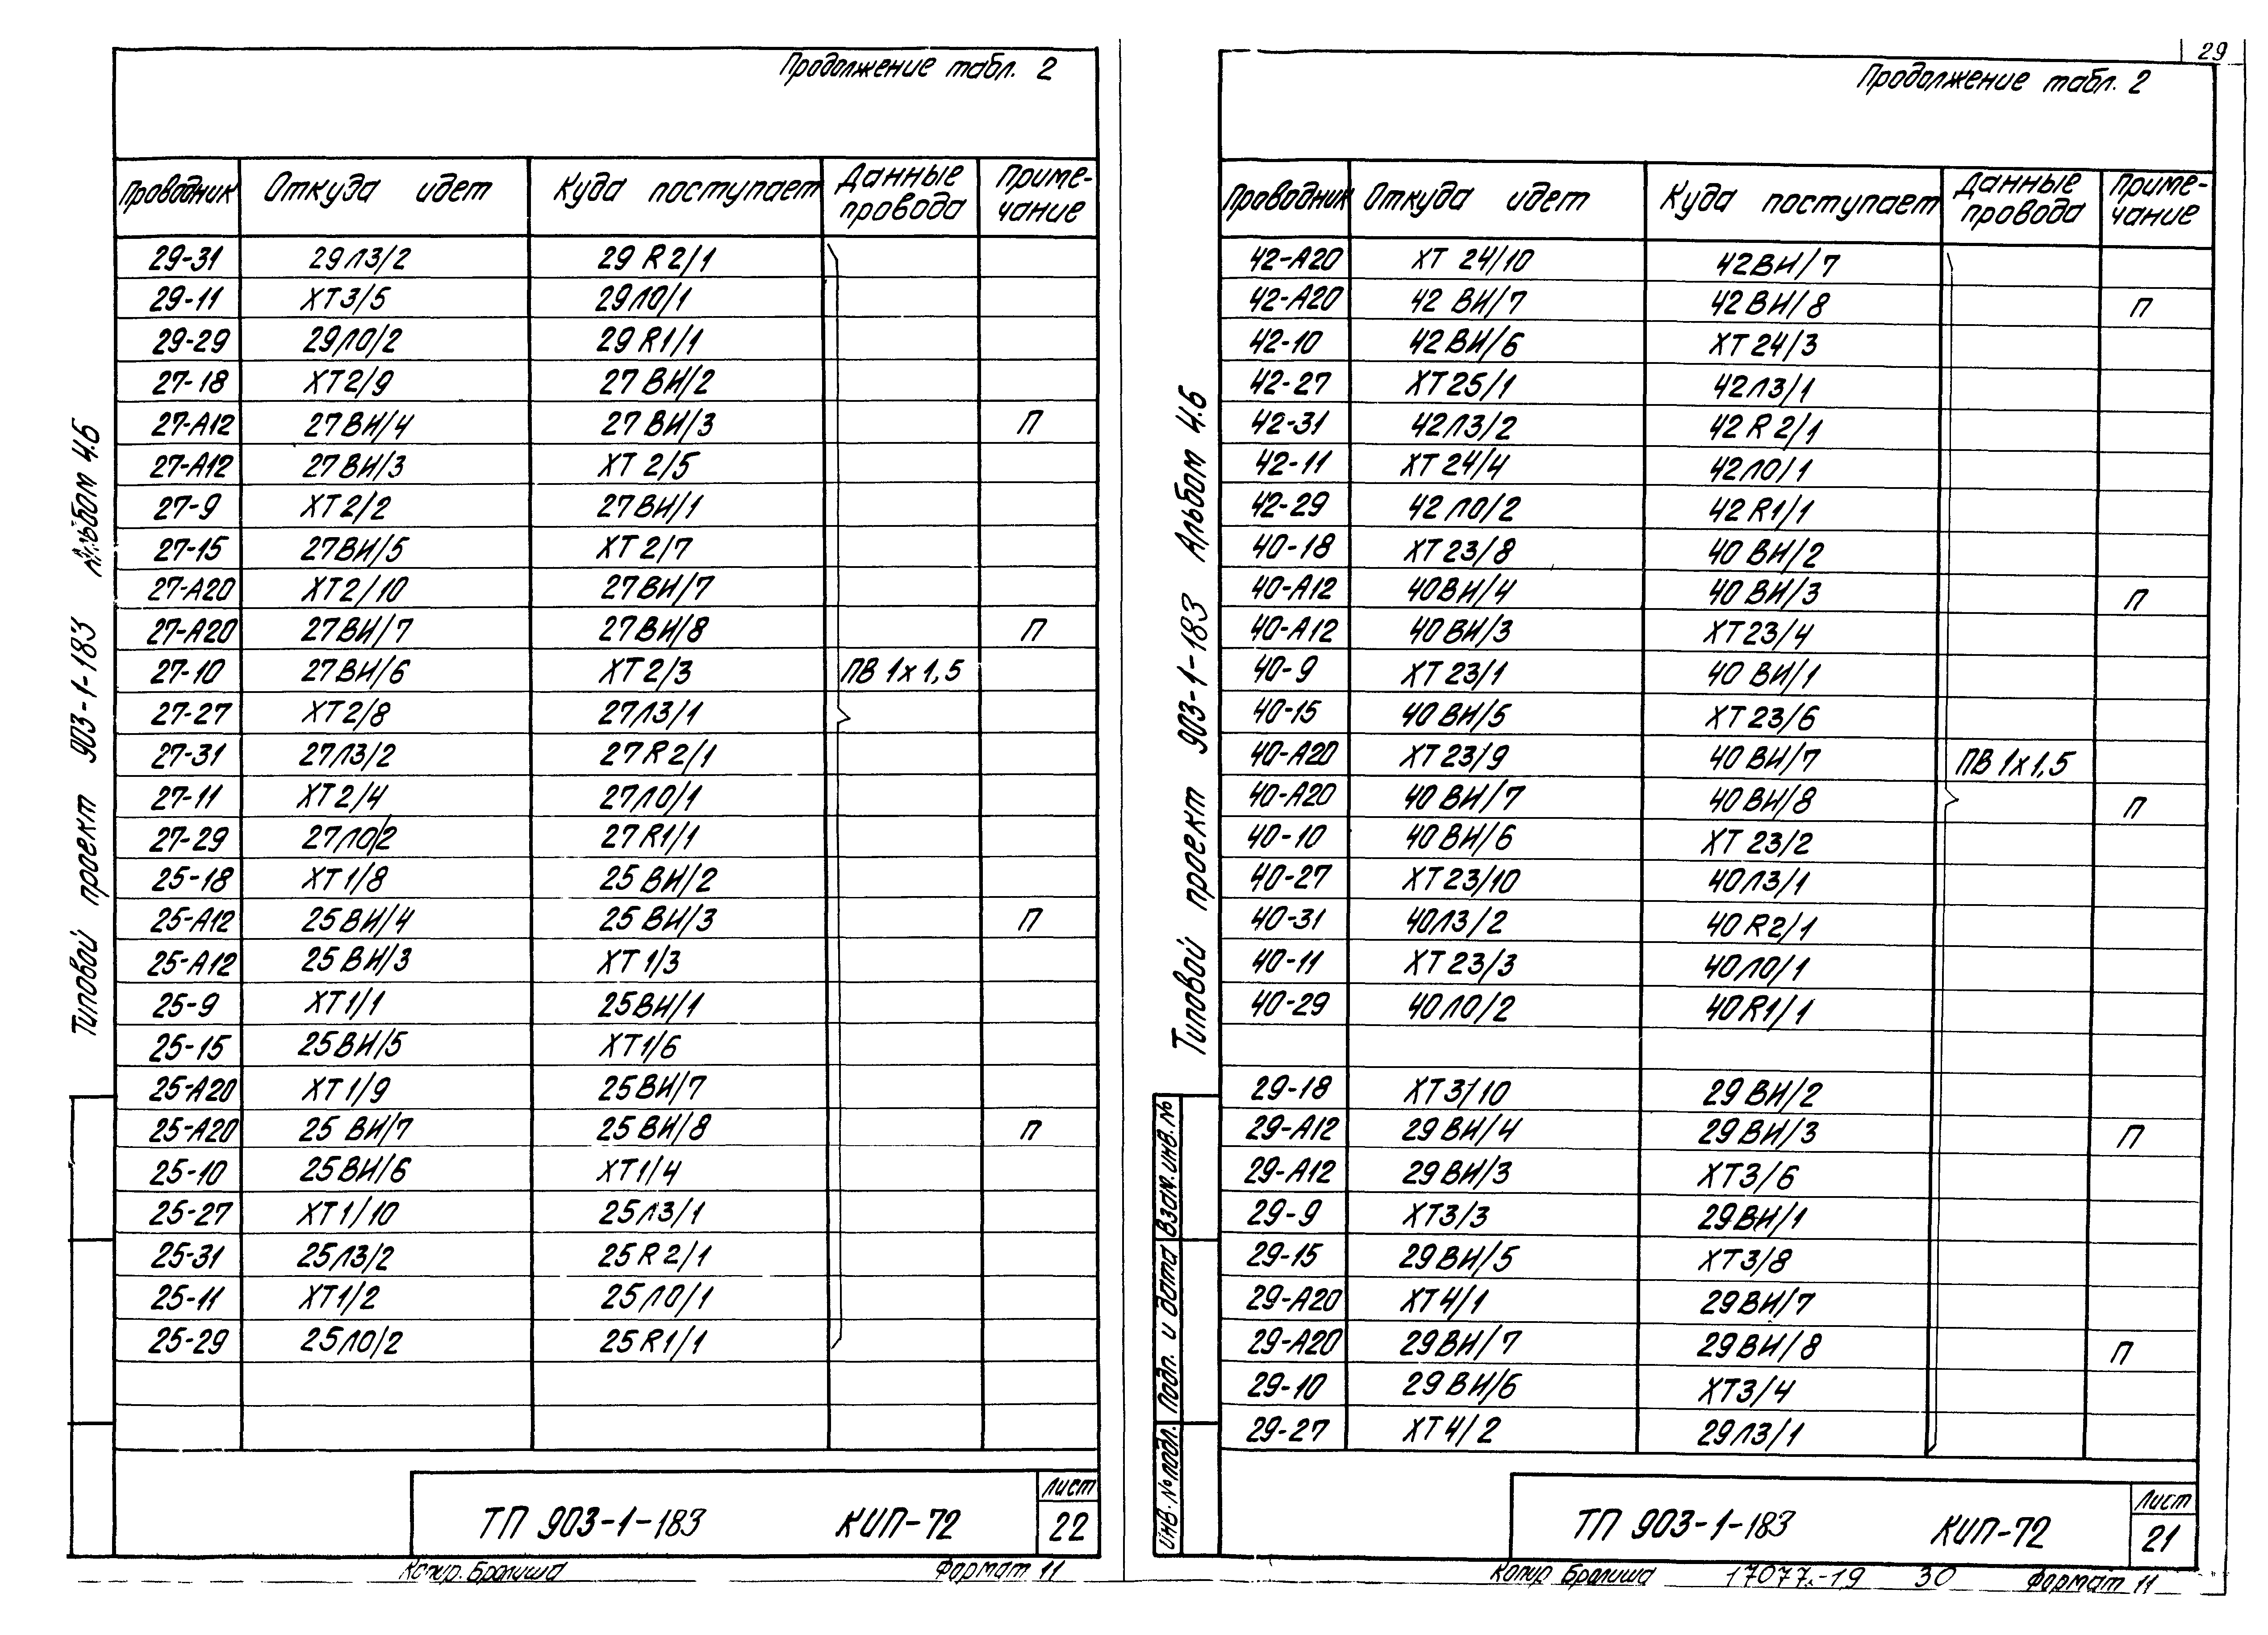 Продолжение табл. 2
Проводник Откуда идет Куда поступает Данные провода Примечание
29-31 29ЛЗ/2 29 R2/1
29-11 ХТ3/5 29ЛО/1
29-29 29ЛО/2 29 R1/1
27-18 ХТ2/9 27 ВИ/2
27-А12 27ВИ/4 27 ВИ/3 П
27-А12 27ВИ/3 ХТ 2/5
27-9 ХТ2/2 27ВИ/1
27-15 27ВИ/5 ХТ2/7
27-А20 ХТ2/10 27ВИ/7
27-А20 27ВИ/7 27ВИ/8 П
27-10 27ВИ/6 ХТ2/3 ПВ 1х1,5
27-27 ХТ2/8 27ЛЗ/1
27-31 27ЛЗ/2 27R2/1
27-11 ХТ2/4 27ЛО/1
27-29 27ЛО/2 27R1/1
25-18 ХТ1/8 25ВИ/2
25-А12 25ВИ/4 25ВИ/3 П
25-А12 25ВИ/3 ХТ1/3
25-9 ХТ1/1 25ВИ/1
25-15 25ВИ/5 ХТ1/6
25-А20 ХТ1/9 25ВИ/7
25-А20 25 ВИ/7 25ВИ/8 П
25-10 25ВИ/6 ХТ1/4
25-27 ХТ1/10 25ЛЗ/1
25-31 25ЛЗ/2 25R2/1
25-11 ХТ1/2 25ЛО/1
25-29 25ЛО/2 25R1/1
Типовой проект 903-1-183 Альбом 4.6
ТП 903-1-183 КИП-72
Лист
22
Копир. Формат 11
29
Продолжение табл. 2
Проводник Откуда идет Куда поступает Данные провода Примечание
42-А20 ХТ 24/10 42ВИ/7
42-А20 42 ВИ/7 42ВИ/8 П
42-10 42ВИ/6 ХТ24/3
42-27 ХТ25/1 42ЛЗ/1
42-31 42ЛЗ/2 42R2/1
42-11 ХТ24/4 42ЛО/1
42-29 42ЛО/2 42R1/1
40-18 ХТ23/8 40ВИ/2
40-А12 40ВИ/4 40ВИ/3 П
40-А12 40ВИ/3 ХТ23/4
40-9 ХТ23/1 40ВИ/1
40-15 40ВИ/5 ХТ23/6
40-А20 ХТ23/9 40ВИ/7 ПВ 1х1,5
40-А20 40ВИ/7 40ВИ/8 П
40-10 40ВИ/6 ХТ23/2
40-27 ХТ23/10 40ЛЗ/1
40-31 40ЛЗ/2 40R2/1
40-11 ХТ23/3 40ЛО/1
40-29 40ЛО/2 40R1/1
29-18 ХТ3/10 29ВИ/2
29-А12 29ВИ/4 29ВИ/3 П
29-А12 29ВИ/3 ХТ3/6
29-9 ХТ3/3 29ВИ/1
29-15 29ВИ/5 ХТ3/8
29-А20 ХТ4/1 29ВИ/7
29-А20 29ВИ/7 29ВИ/8 П
29-10 29ВИ/6 ХТ3/4
29-27 ХТ4/2 29ЛЗ/1
Типовой проект 903-1-183 Альбом 4.6
Инв. № подл. Подп. и дата Взам. инв. №
ТП 903-1-183 КИП-72
Лист
21
Копир 17077-19 30 Формат 11